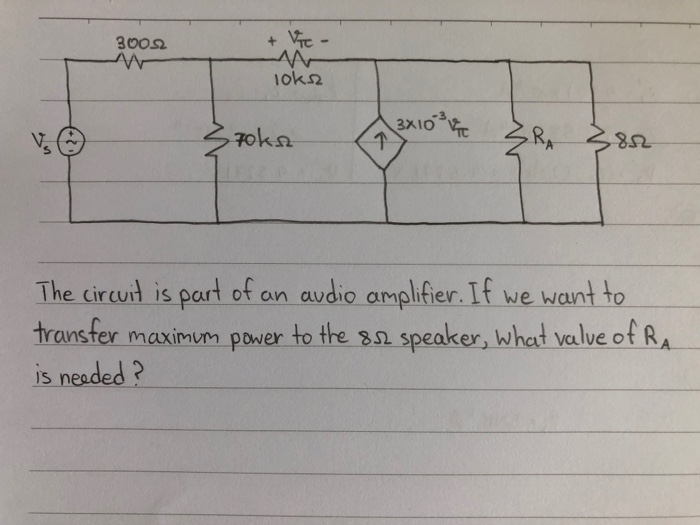 300Ω
+ Vπ -
10kΩ
Vs
+
~
70kΩ
↑
3x10⁻³Vπ
RA
8Ω
The circuit is part of an audio amplifier. If we want to
transfer maximum power to the 8Ω speaker, what value of RA
is needed?